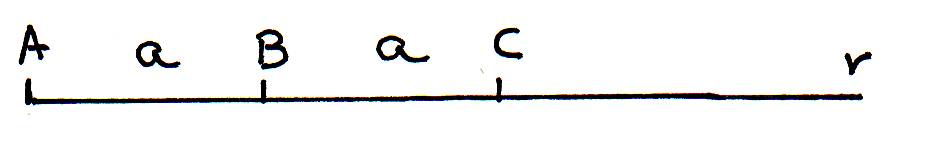 A a B a C r